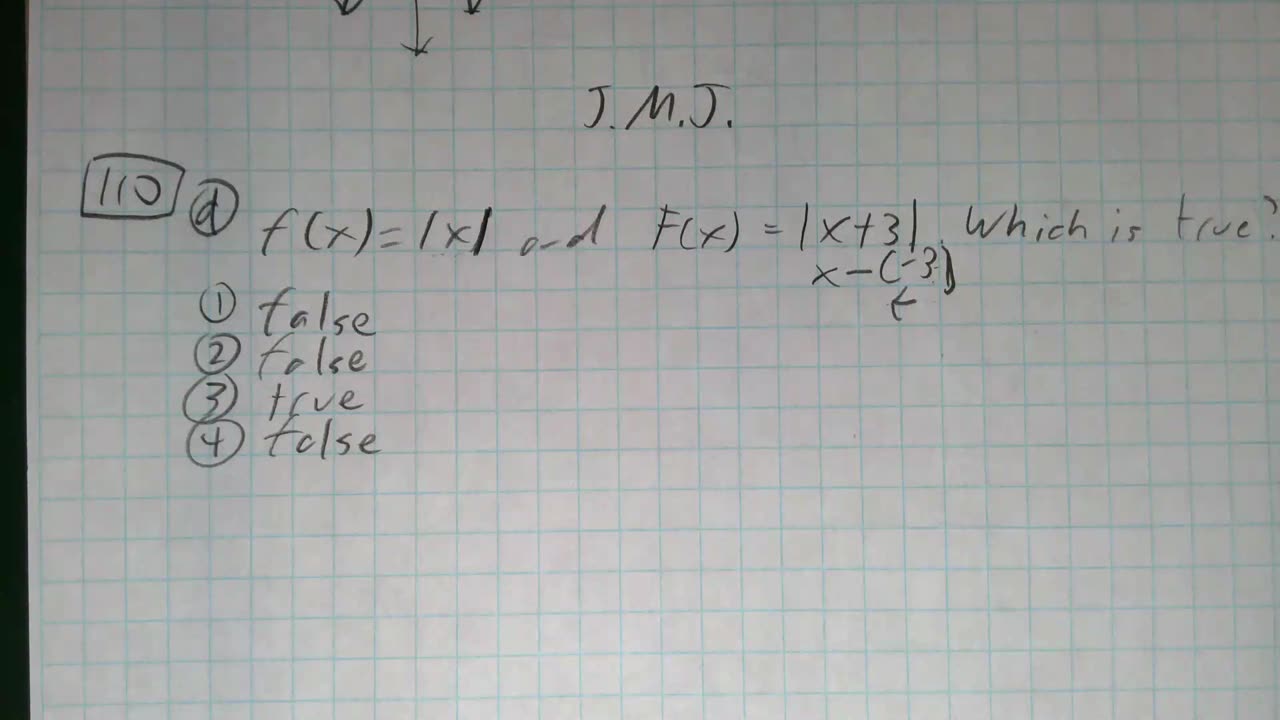 J.M.J.
110 d f(x) = |x| and F(x) = |x+3|. Which is true?
x-(-3)
←
① false
② false
③ true
④ false